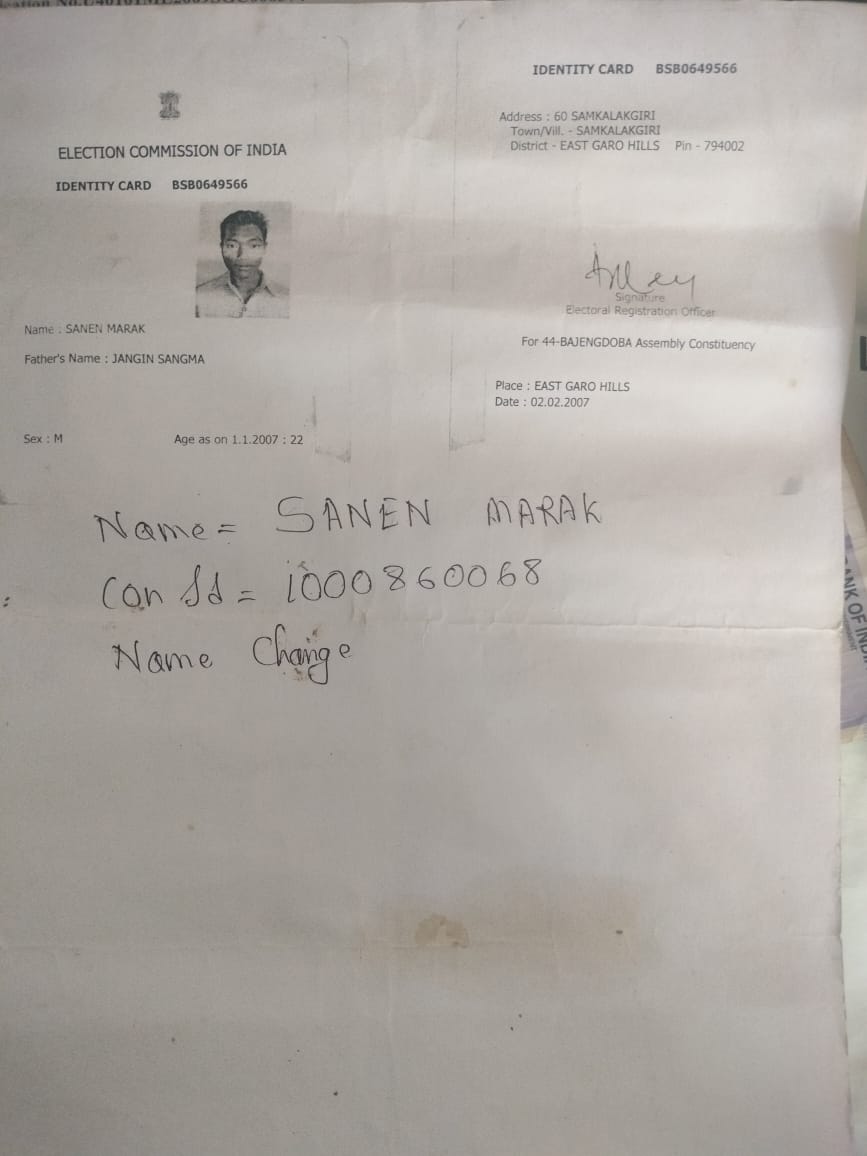 ELECTION COMMISSION OF INDIA
IDENTITY CARD BSB0649566
Name : SANEN MARAK
Father's Name : JANGIN SANGMA
Sex : M Age as on 1.1.2007 : 22
IDENTITY CARD BSB0649566
Address : 60 SAMKALAKGIRI
Town/Vill. - SAMKALAKGIRI
District - EAST GARO HILLS Pin - 794002
Signature
Electoral Registration Officer
For 44-BAJENGDOBA Assembly Constituency
Place : EAST GARO HILLS
Date : 02.02.2007
Name = SANEN MARAK
Con Id = 1000860068
Name Change